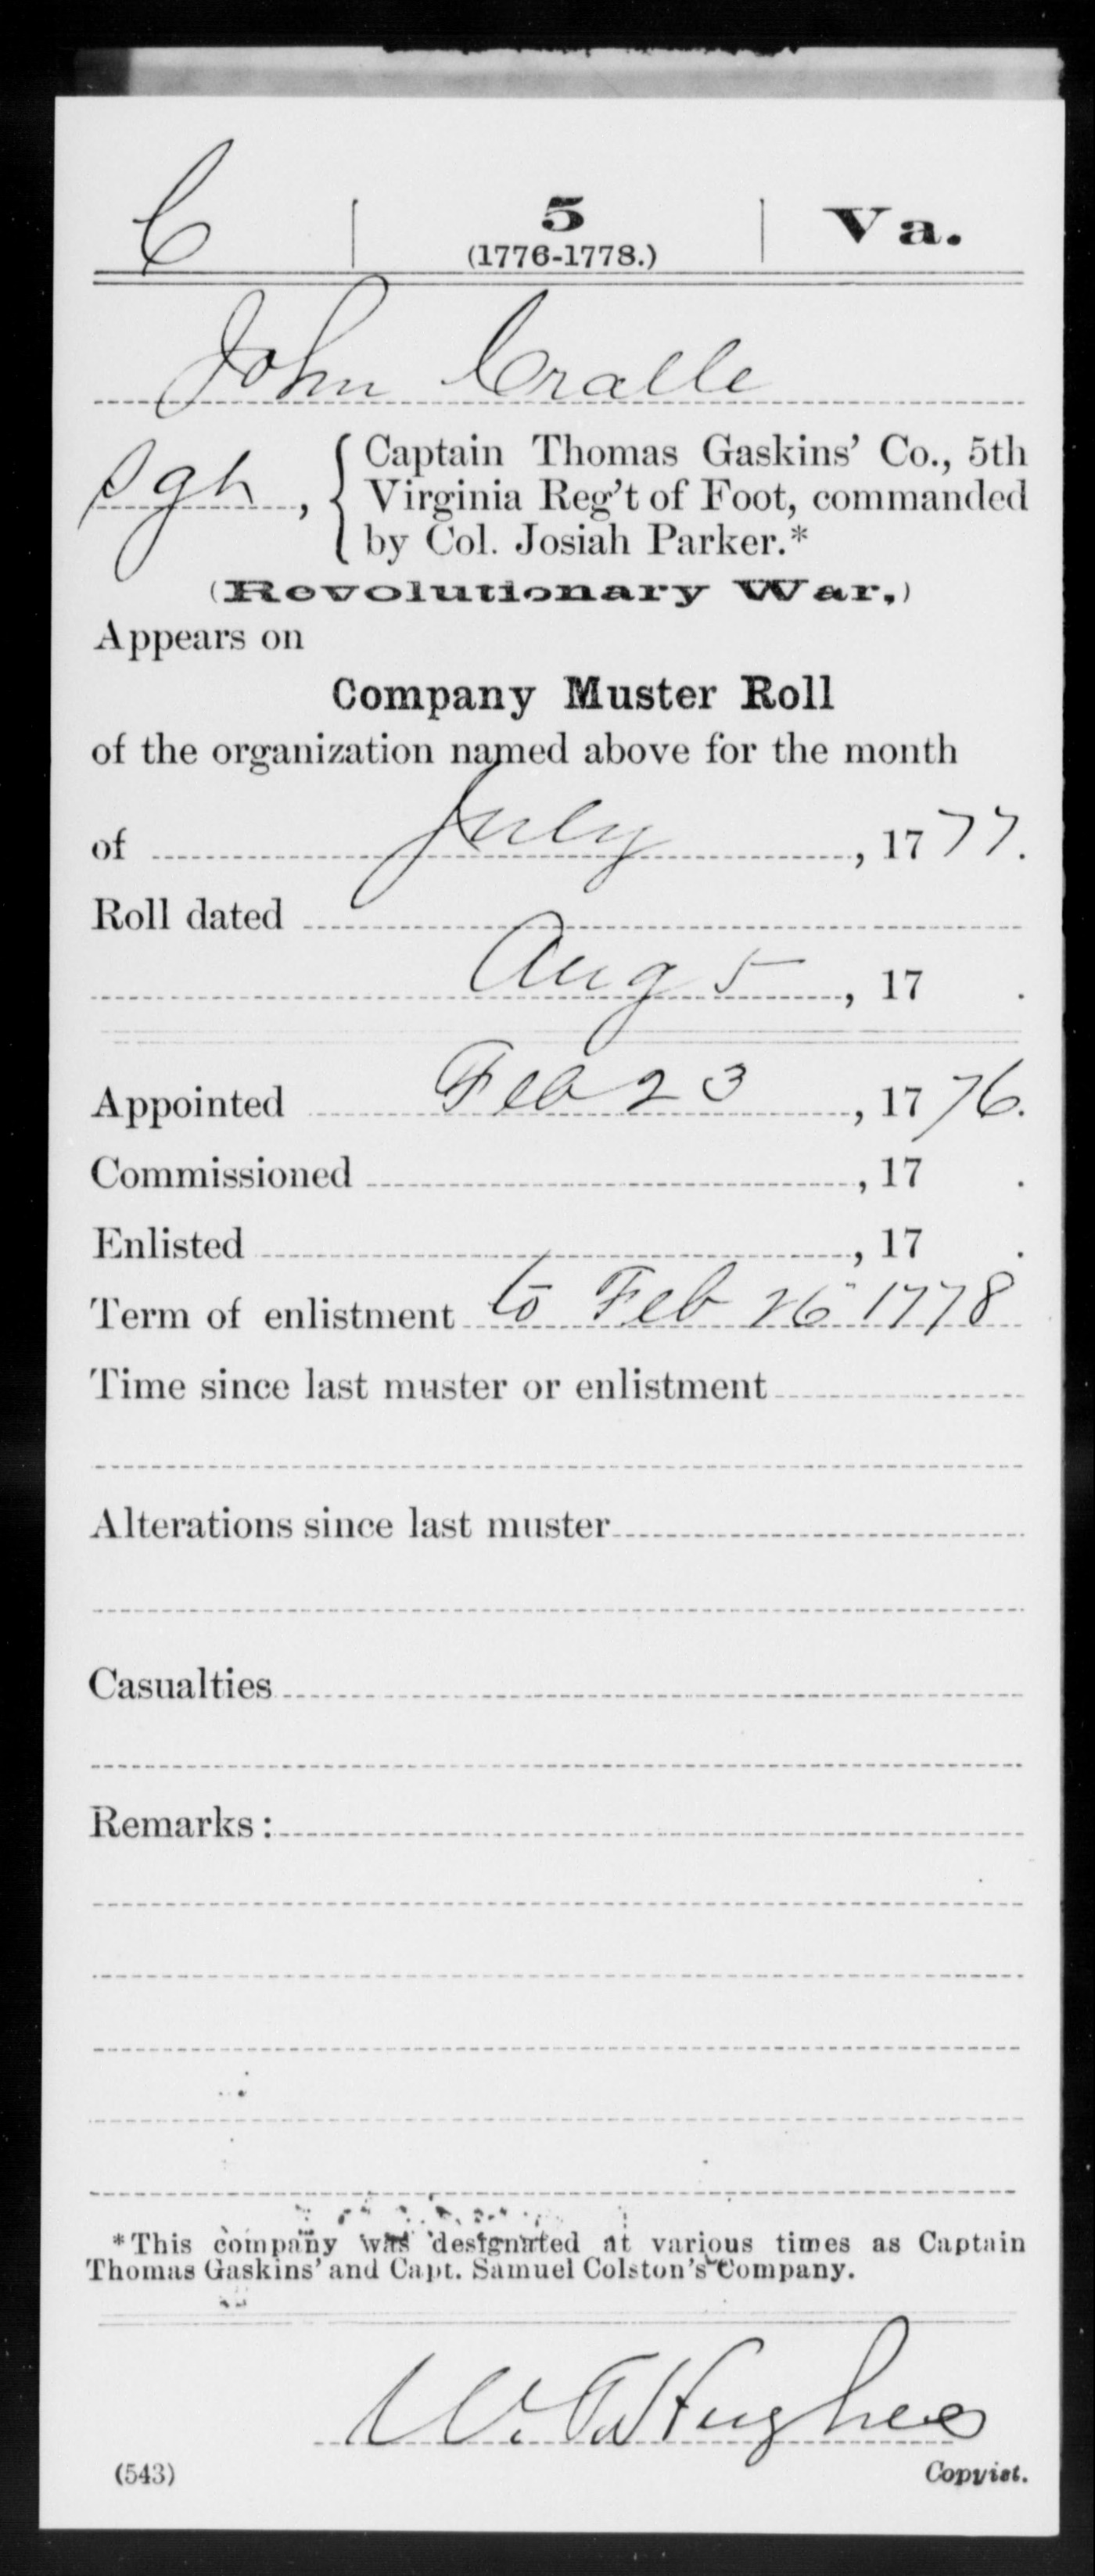 C | 5 | Va.
(1776-1778.)
John Cralle
Sgt, { Captain Thomas Gaskins' Co., 5th
Virginia Reg't of Foot, commanded
by Col. Josiah Parker.*
(Revolutionary War.)
Appears on
Company Muster Roll
of the organization named above for the month
of July, 1777.
Roll dated
Aug 5, 17 .
Appointed Feb 23, 1776.
Commissioned , 17 .
Enlisted , 17 .
Term of enlistment to Feb 26" 1778
Time since last muster or enlistment
Alterations since last muster
Casualties
Remarks:
*This company was designated at various times as Captain
Thomas Gaskins' and Capt. Samuel Colston's Company.
Hughes
(543) Copyist.